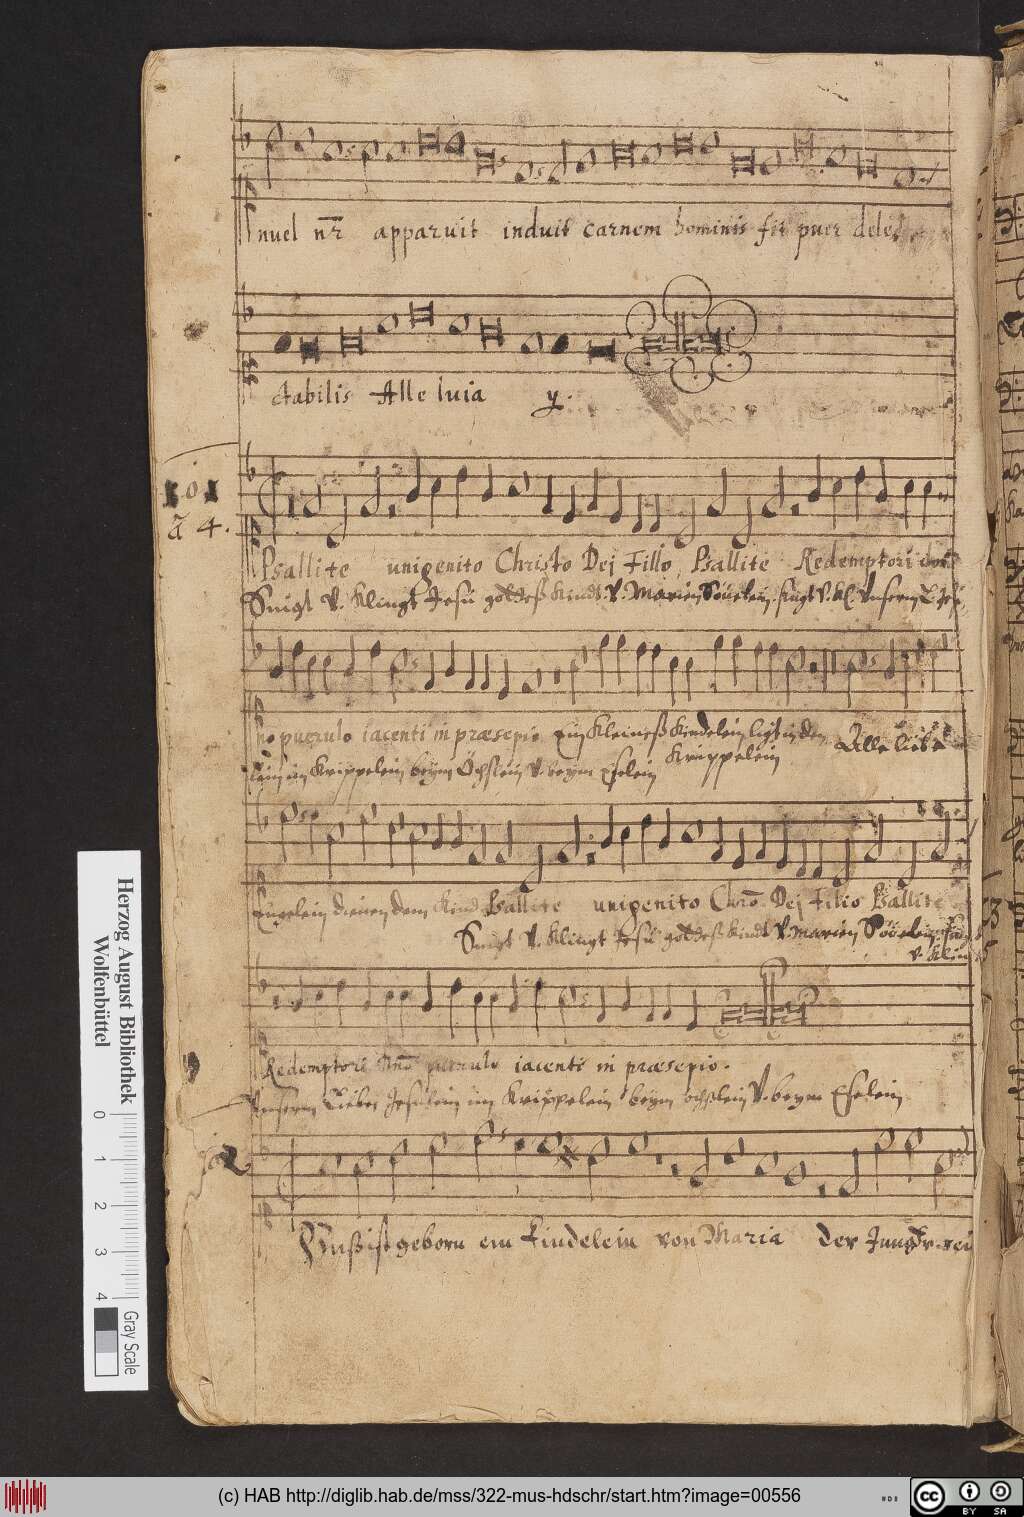 nuel nr apparuit induit carnem hominis fit puer dele
ctabilis Alleluia ij.
101
à 4.
Psallite unigenito Christo Dej Filio, Psallite Redemptori
Singt v. klingt Jesu gottes kindt v. Marien Söuelein. singt v. kl. vnserm
no puerulo iacenti in præsepio Ein kleineß kindelein ligt in dem Alle liebe
lein im krippelein beym Öchslein v. beym Eselein krippelein
Engelein dienen dem kind Psallite unigenito Chrō Dej Filio Psallite
Singt v. klingt Jesu gottes kindt v. Marien Söuelein sing
v. klin
Redemptori Dno puerulo iacenti in præsepio.
vnserm Lieben Jesulein im krippelein beym ochßlein v. beym Eselein
102
Vnß ist geborn ein kindelein von Maria der Jungfr. rei
Herzog August Bibliothek
Wolfenbüttel
0 1 2 3 4
Gray Scale
(c) HAB http://diglib.hab.de/mss/322-mus-hdschr/start.htm?image=00556
cc BY SA